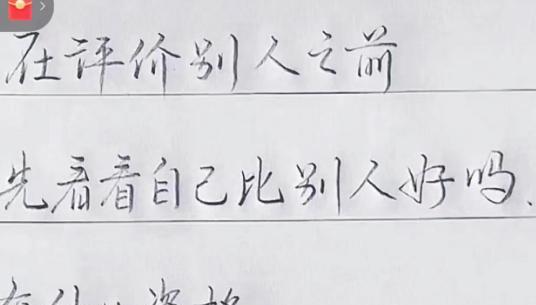 在评价别人之前
先看看自己比别人好吗.